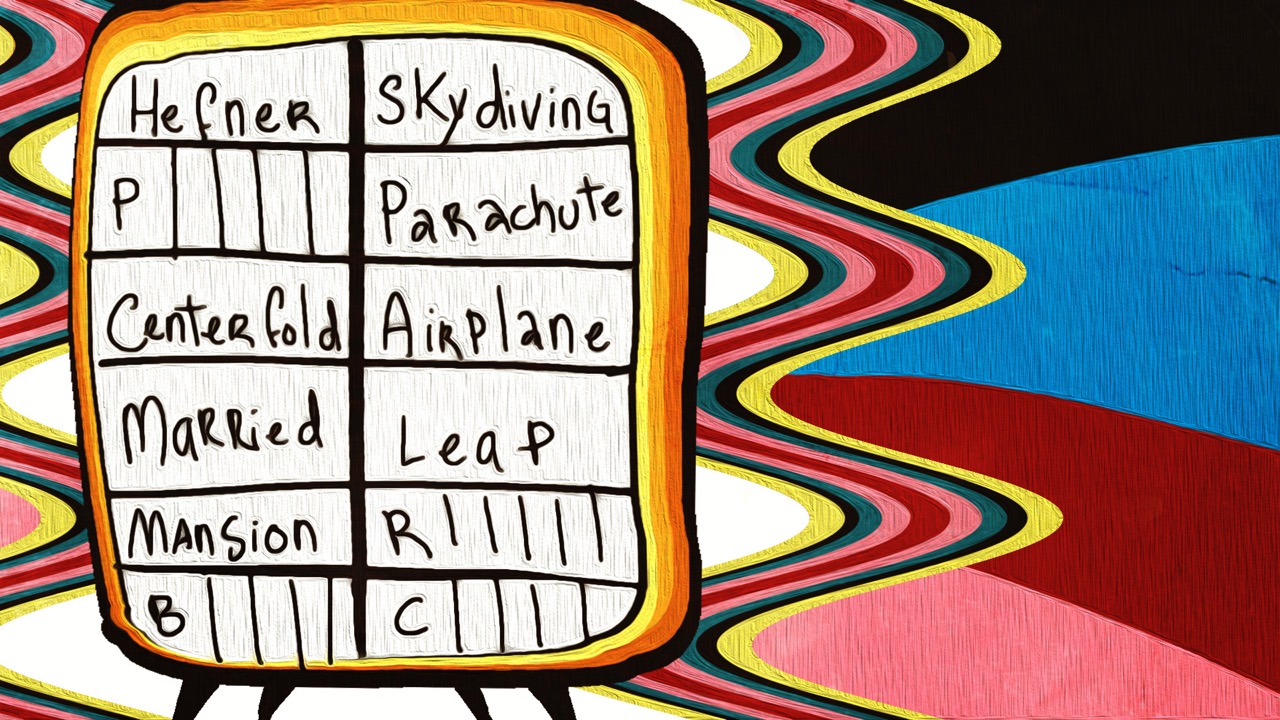 Hefner Skydiving
P Parachute
Centerfold Airplane
Married Leap
Mansion R
B C